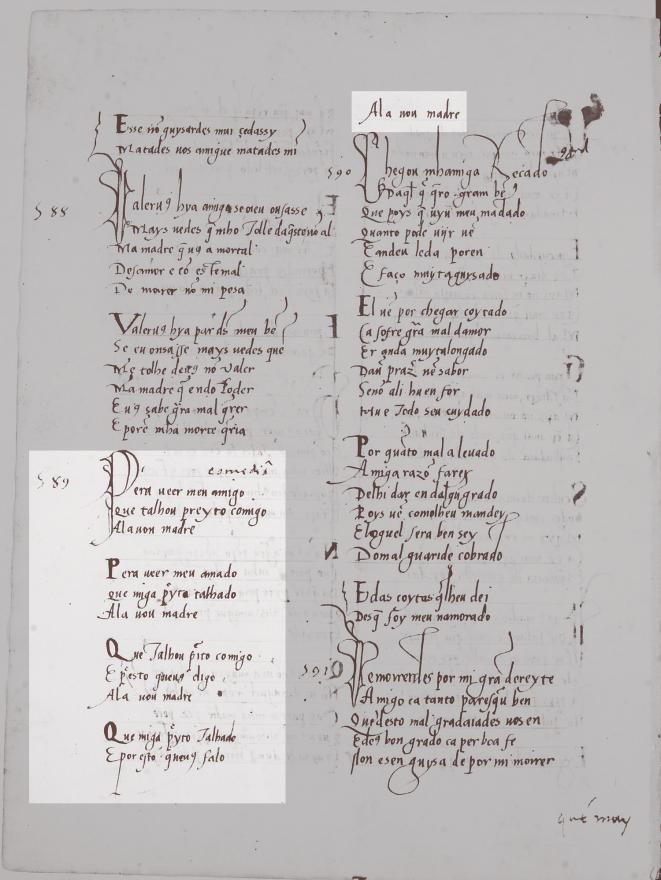 Esse nō guysardes mui çedassy
Matades uos amigue matades mi
588
Valeru9 hya amigo se meu ousasse
Mays uedes q̄ mho Tolle
Ma madre q̄ u9 a mortal
Desamor e cō es te mal
De morer nō mi pesa
Valeru9 hya par ds meu bē
Se eu onsasse mays uedes que
Me tolhe de u9 nō valer
Ma madre q̄ endo poder
E u9 sabe grā mal q̄rer
E porē mha morte q̄ria
589
Pera ueer meu amigo
que talhou preyto comigo
Ala uou madre
Pera ueer meu amado
que miga p̄yto talhado
Ala uou madre
Que Talhou p̄ito comigo
E p̄esto queu9 digo
Ala uou madre
Que miga p̄yto Talhado
E por esto queu9 falo
Ala uou madre
590
Chegou mhamiga Recado
Daq̄l q̄ q̄ro gram bē
Que poys q̄ uyu meu mādado
Quanto pode uijr uē
E andeu leda poren
E faço muyt aguysado
El uē por chegar coytado
Ca sofre grā mal damor
Er anda muyt alongado
Dau' praz' nē sabor
Senō ali hu en for
Hu e Todo seu cuydado
Por quāto mal a leuado
Amiga razō farey
Delhi dar end algū grado
Poys uē comolheu mandey
E loguel sera ben sey
Do mal guaride cobrado
E das coytas q̄lheu dei
Desq̄ foy meu namorado
591
Remorredes por mi grā dereyte
Amigo ca tanto paresq̄u ben
Quedesto mal grad aiades uos en
E de9 bon grado ca per boa fe
Non e sen guysa de por mi morrer
que moy